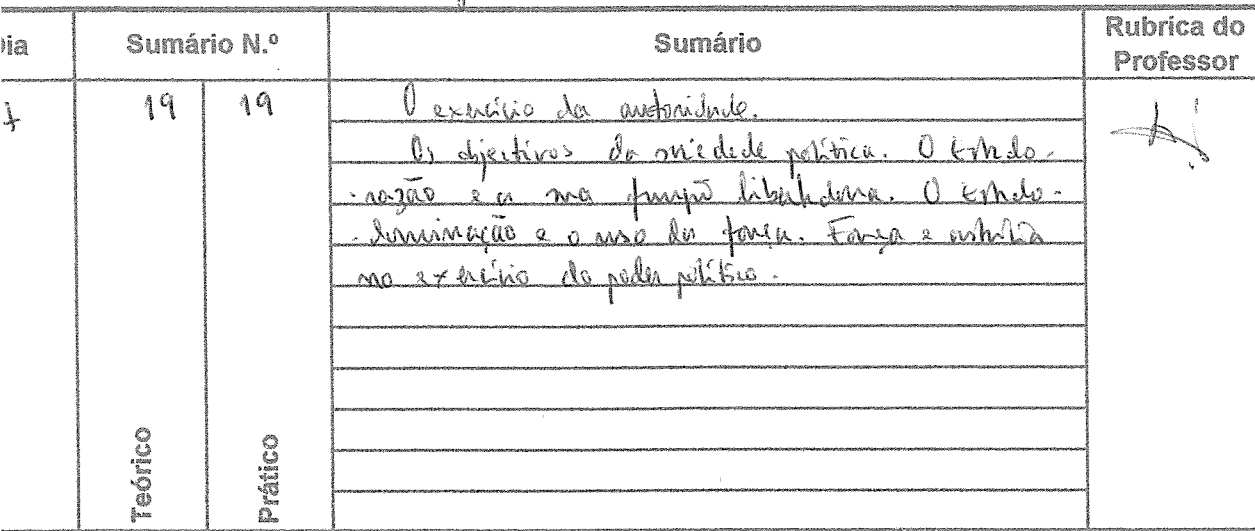 Dia Sumário N.º Sumário Rubrica do Professor
7 19 19 O exercício da autoridade.
Os objectivos da sociedade política. O Estado-
-razão e a sua função libertadora. O Estado-
-dominação e o uso da força. Força e astúcia
no exercício do poder político.
Teórico Prático